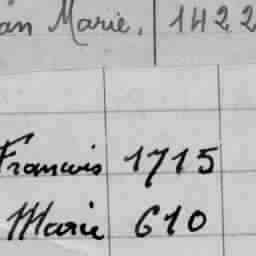 an Marie. 1422
Francois 1715
Marie 610